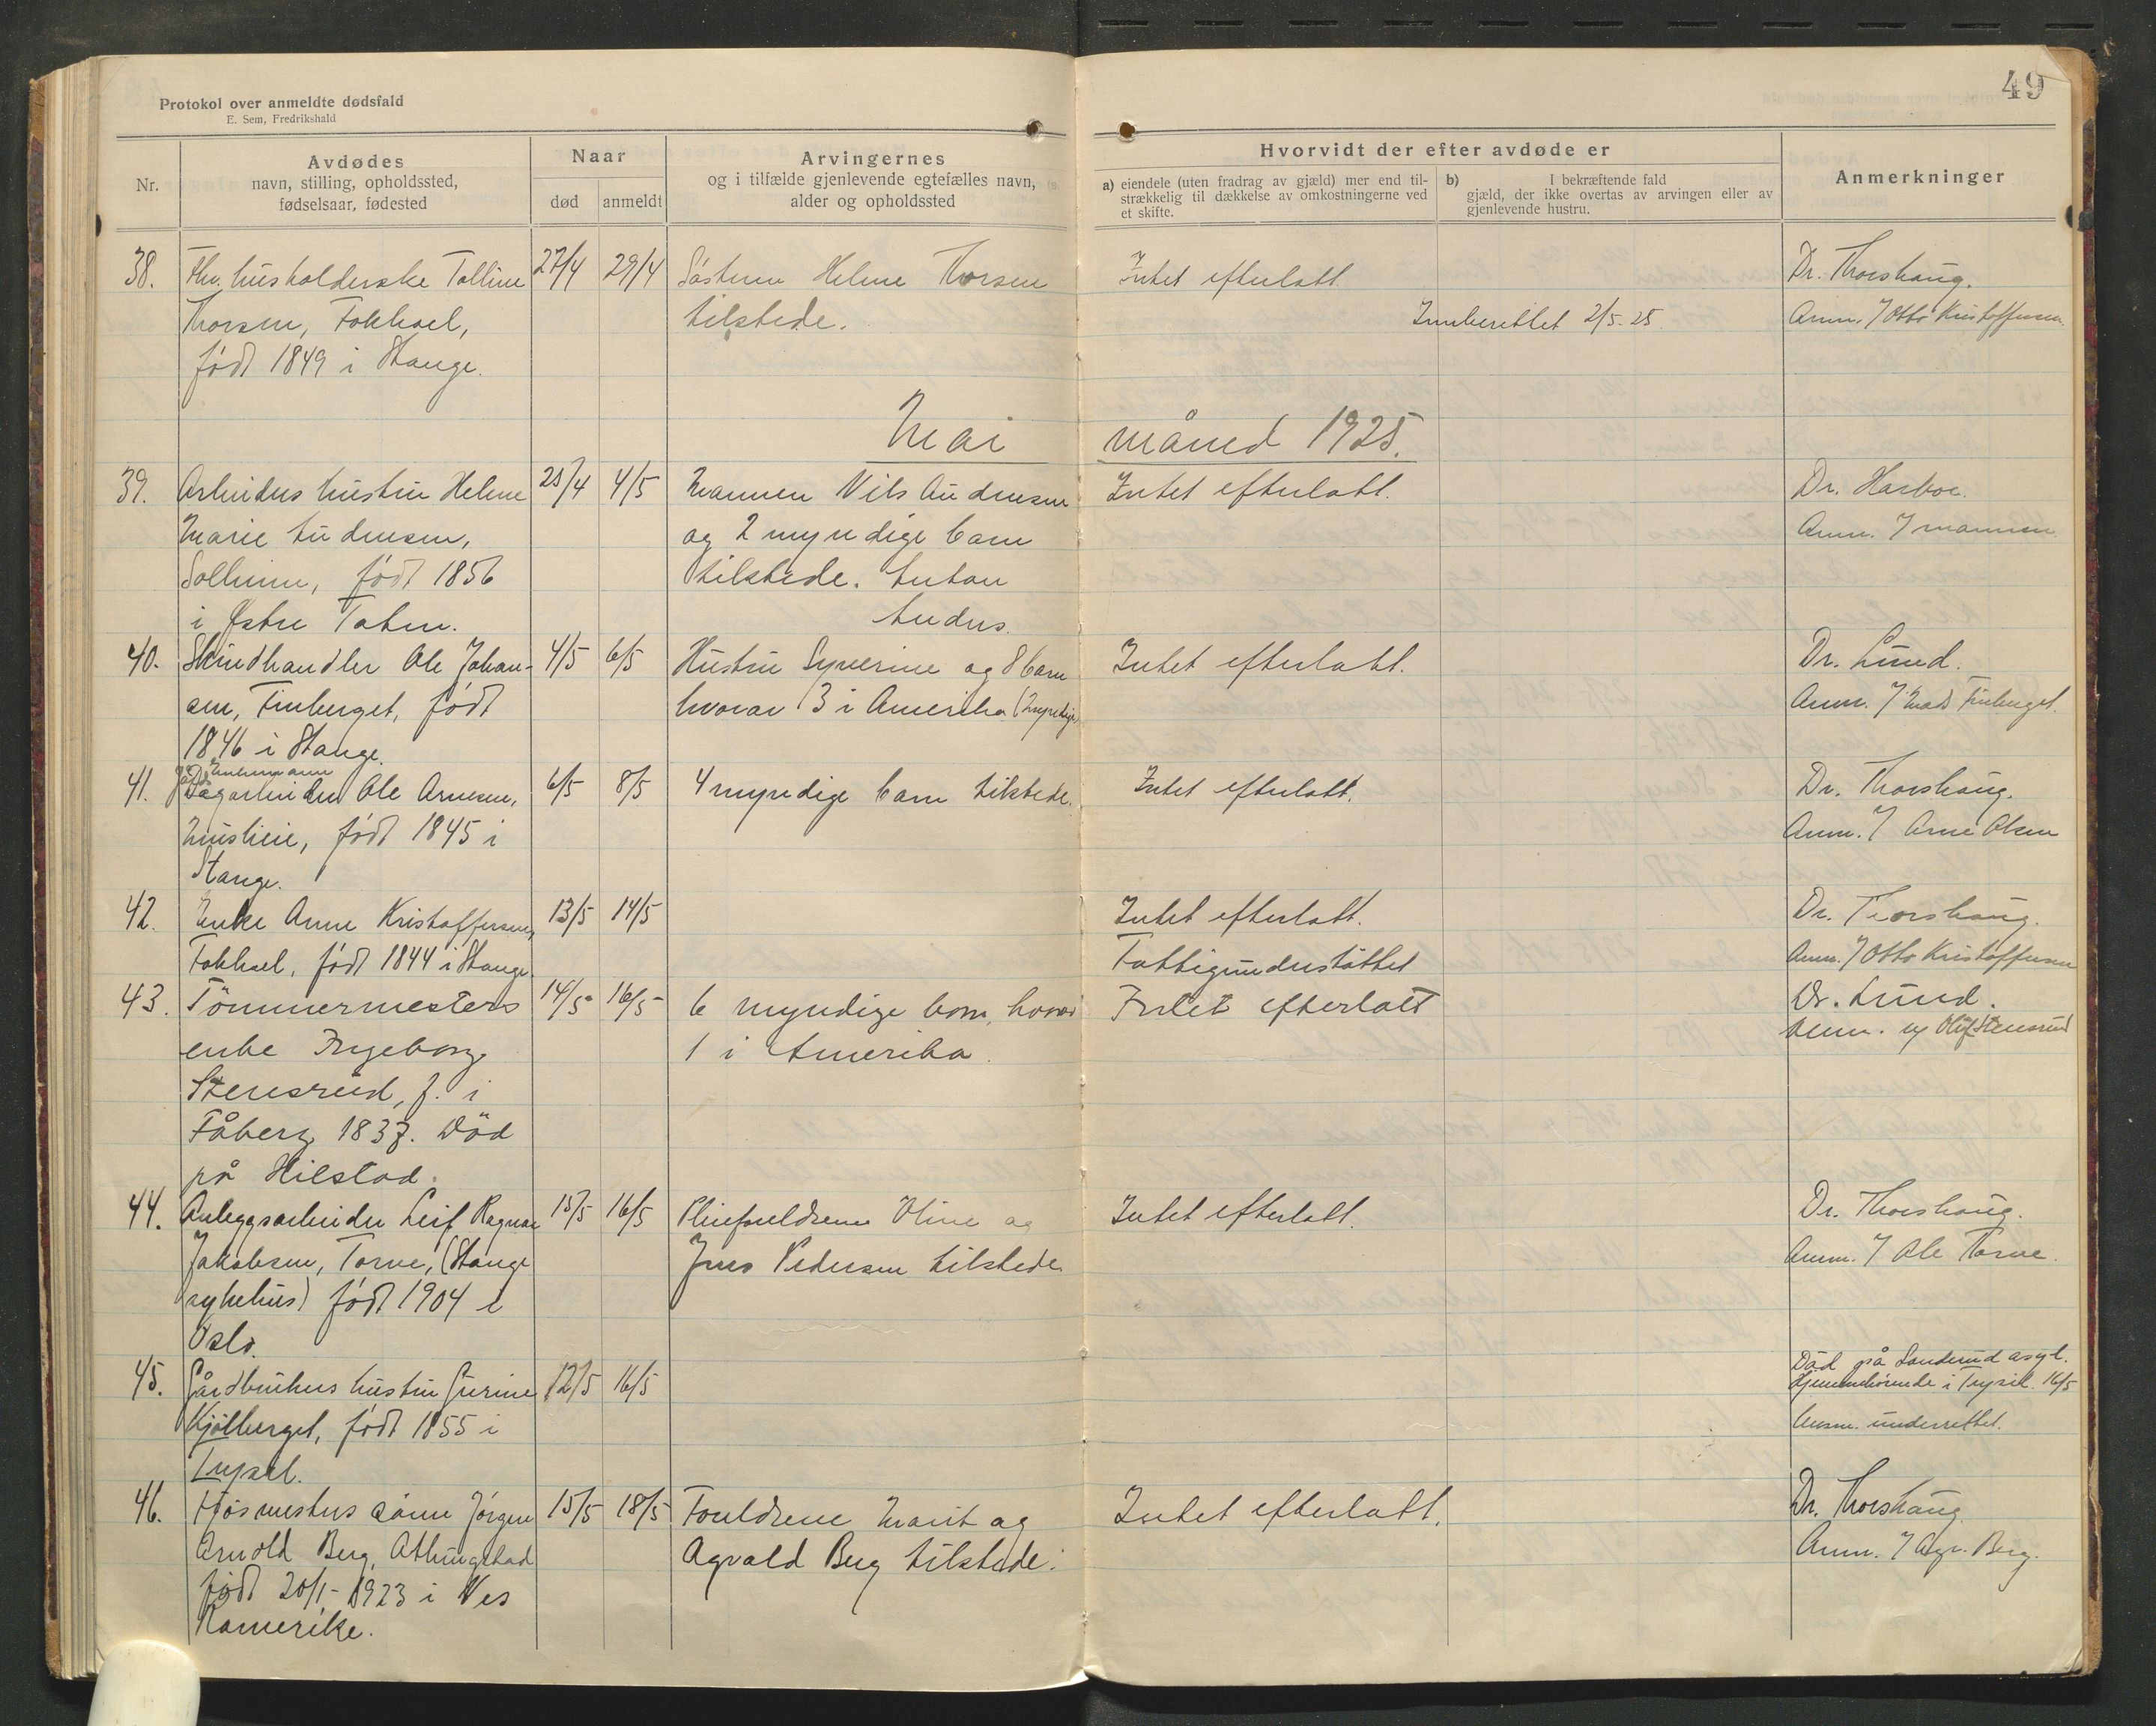 49
Protokol over anmeldte dødsfald
E. Sem, Fredrikshald
Nr.
Avdødes
navn, stilling, opholdssted,
fødselsaar, fødested
Naar
død
anmeldt
Arvingernes
og i tilfælde gjenlevende egtefælles navn,
alder og opholdssted
Hvorvidt der efter avdøde er
a) eiendele (uten fradrag av gjæld) mer end til-
strækkelig til dækkelse av omkostningerne ved
et skifte.
b) I bekræftende fald
gjæld, der ikke overtas av arvingen eller av
gjenlevende hustru.
Anmerkninger
38. Fhv. husholderske Talline 27/4 29/4 Søstren Helene Thorsen Intet efterlatt. Dr. Thorshaug.
Thorsen, Fokhoel, tilstede. Innberettet 2/5-25 Anm. / Otto Kristoffersen
født 1849 i Stange.
Mai måned 1925.
39. Arbeiders hustru Helene 25/4 4/5 Mannen Nils Audensen Intet efterlatt. Dr. Harboe.
Marie Audensen, og 2 myndige barn Anm. / mannen
Solheim, født 1856 tilstede. Anton
i Østre Toten. Anders.
40. Skindhandler Ole Johan- 4/5 6/5 Hustru Syverine og 8 barn Intet efterlatt. Dr. Lund.
sen, Finberget, født hvorav 3 i Amerika (myndige) Anm. / Mads Finberget.
1846 i Stange.
41. Enkemann
Dagarbeider Ole Arnesen, 6/5 8/5 4 myndige barn tilstede. Intet efterlatt. Dr. Thorshaug.
født 1845 i Anm. / Arne Olsen
Stange.
42. Enke Anne Kristoffersen, 13/5 14/5 Intet efterlatt. Dr. Thorshaug.
Fokhoel, født 1844 i Stange. Fattigunderstøttet Anm. / Otto Kristoffersen
43. Tömmermesters 14/5 16/5 6 myndige born, hvorav Intet efterlatt Dr. Lund.
enke Ingeborg 1 i Amerika. Anm. av Oluf Stensrud
Stensrud, f. i
Fåberg 1837. Död
på Hilstad.
44. Anleggsarbeider Leif Ragnar 15/5 16/5 Pleieforeldrene Oline og Intet efterlatt. Dr. Thorshaug.
Jakobsen, Torve, (Stange Jens Pedersen tilstede. Anm. / Ole Torve.
sykehus) født 1904 i
Oslo.
45. Gårdbrukers hustru Gurine 12/5 16/5 Död på Sanderud asyl.
Kjølberget, født 1855 i Hjemmehørende i Trysil. 16/5
Trysil. lensm. underrettet.
46. Fjøsmesters sønn Jørgen 15/5 18/5 Foreldrene Marit og Intet efterlatt. Dr. Thorshaug
Arnold Berg, Atlungstad Agvald Berg tilstede. Anm. / Agv. Berg.
født 20/1-1923 i Nes
Romerike.